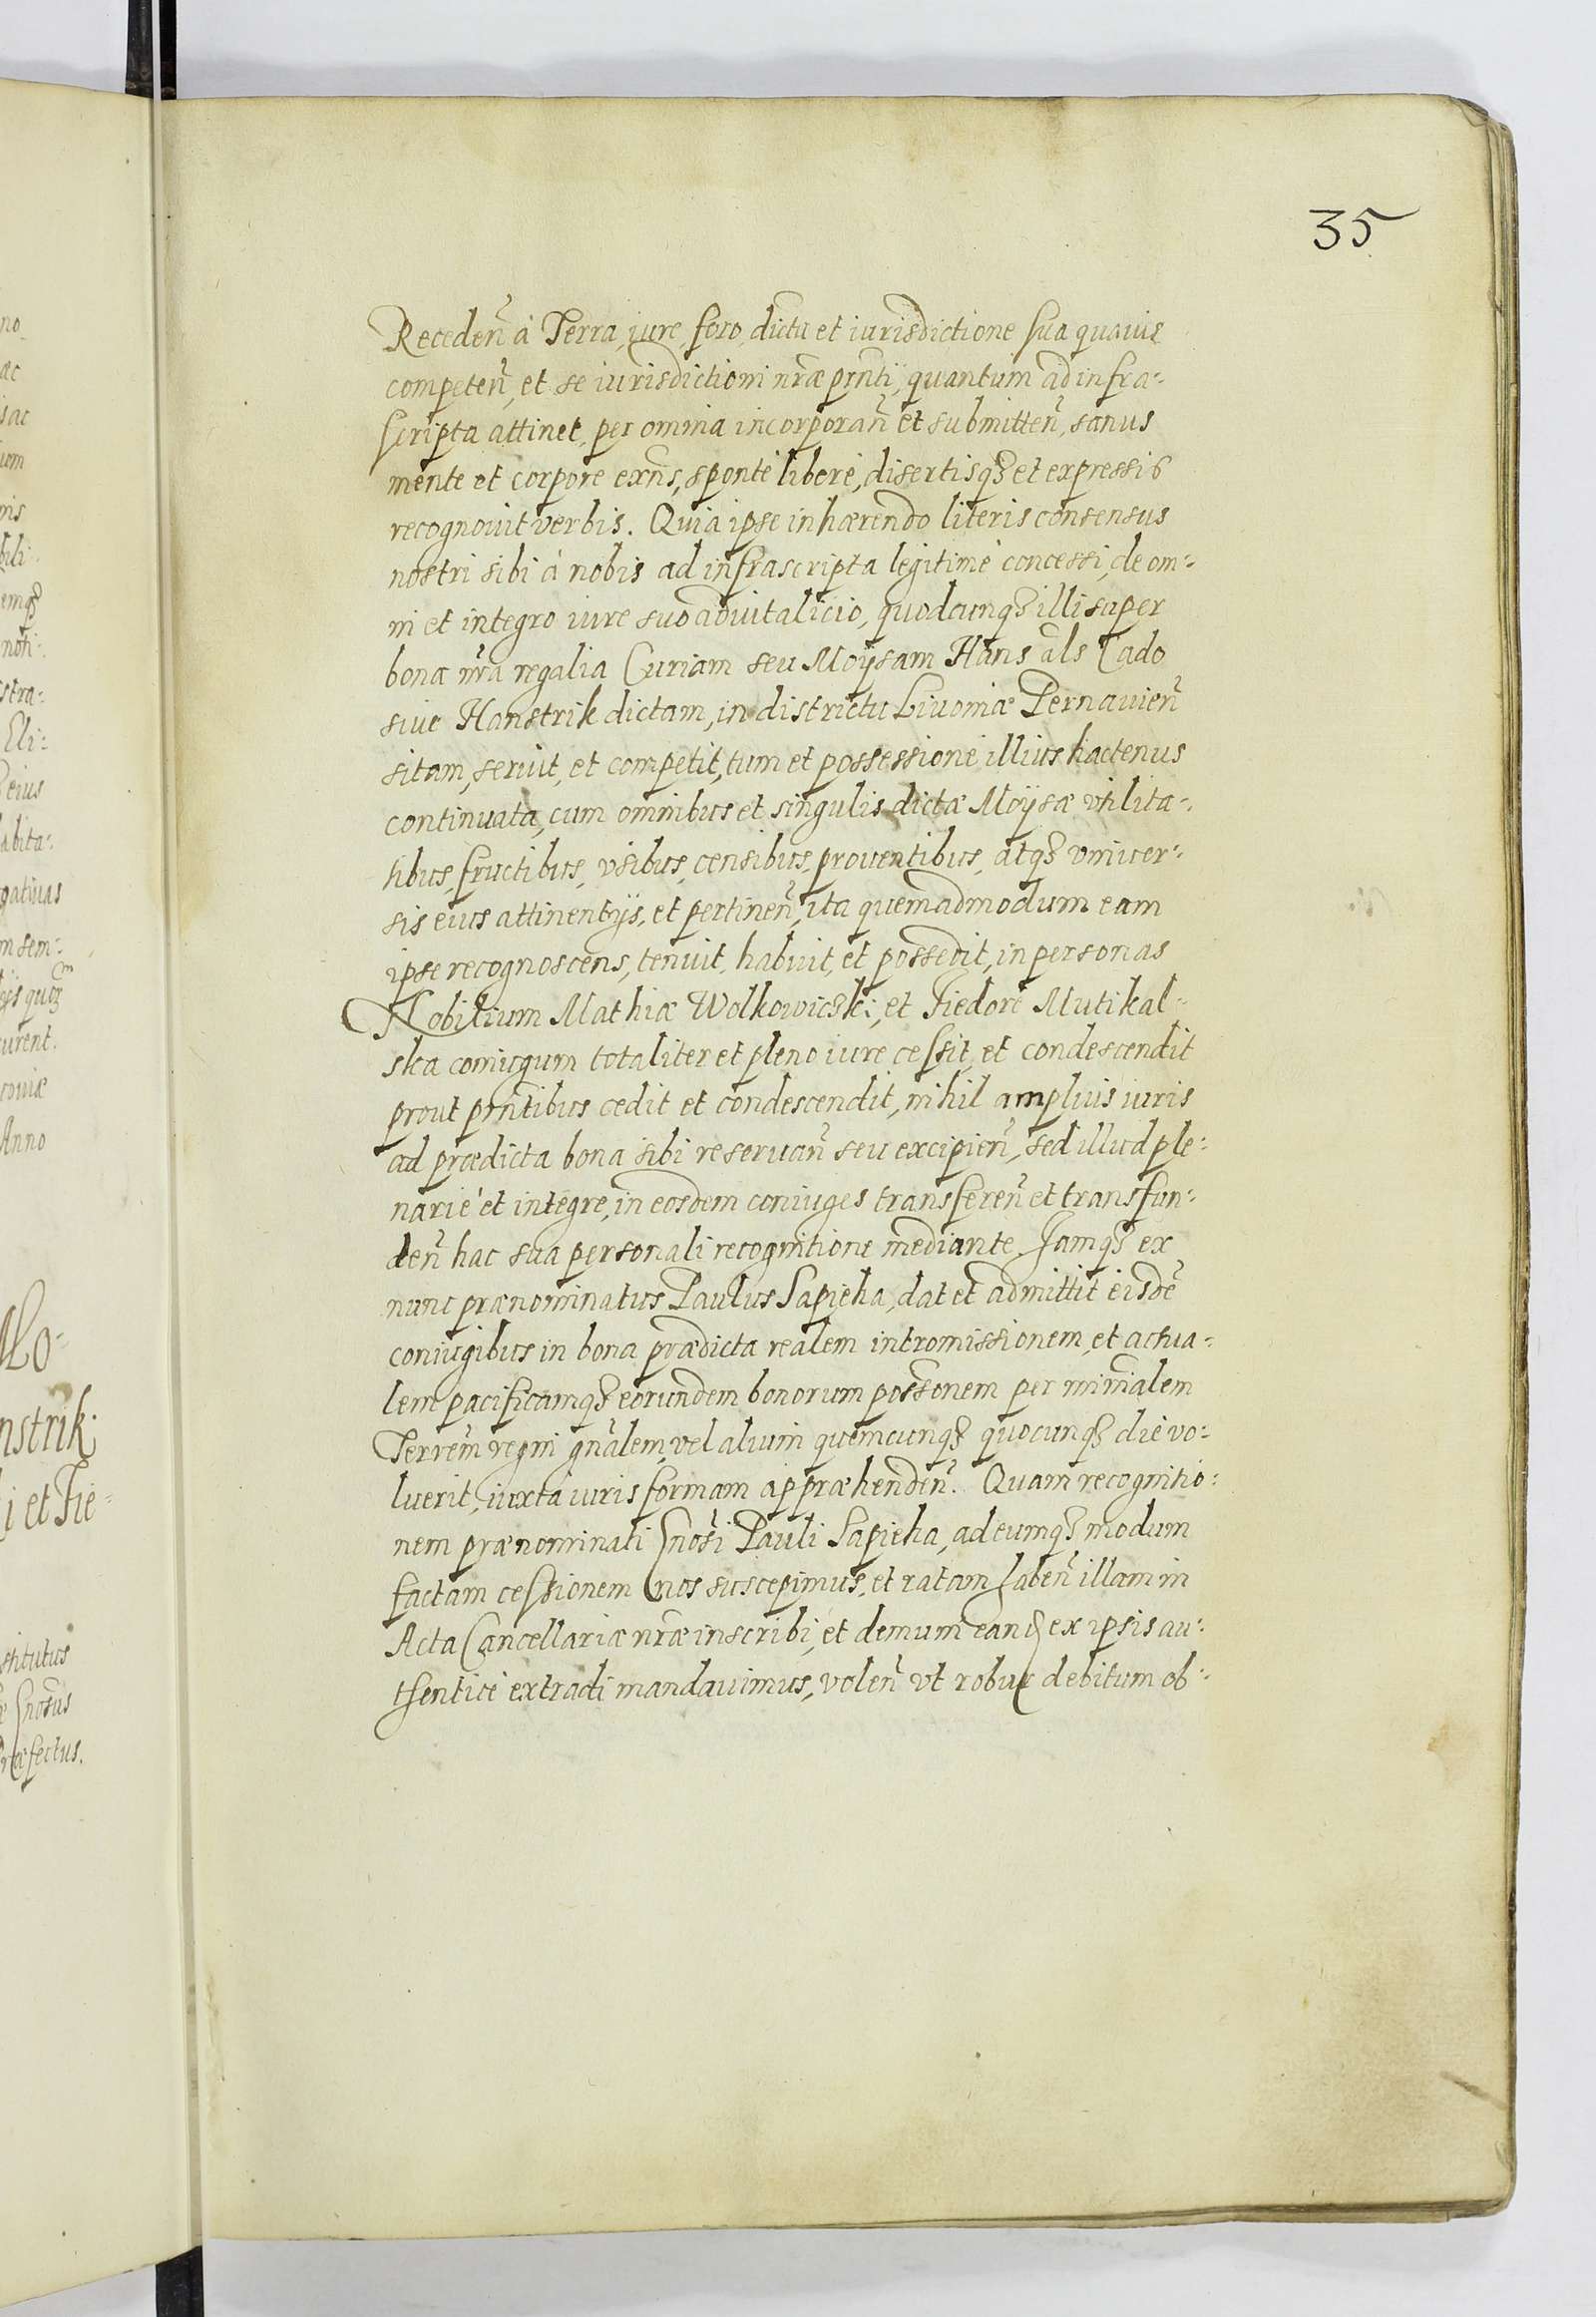 35
Recedeñ à Terra, iure, foro, dicta et iurisdictione sua quauis
competeñ, et se iurisdictioni nr̃æ prñti, quantum ad infra-
scripta attinet, per omnia incorporañ et submitteñ, sanus
mente et corpore exñs, sponte liberè, disertisq3 et expressis
recognouit verbis. Quia ipse inhærendo literis consensus
nostri sibi à nobis ad infrascripta legitimè concessi, de om-
ni et integro iure suo aduitalicio, quodcunq3 illi super
bona nr̃a regalia Curiam seu Moÿsam Hans als Cado
siue Hanstrik dictam, in districtu Liuoniæ Pernauieñ
sitam, seruit, et competit, tum et possessione illius hactenus
continuata, cum omnibus et singulis dictæ Moÿsæ vtilita-
tibus, fructibus, vsibus, censibus, prouentibus, atq3 vniuer-
sis eius attinentijs, et pertineñ, ita quemadmodum eam
ipse recognoscens, tenuit, habuit, et possedit, in personas
Nobilium Mathiæ Wolkowicski, et Fiedore Mutikal-
ska coniugum totaliter et pleno iure cessit, et condescendit
prout prñtibus cedit et condescendit, nihil amplius iuris
ad prædicta bona sibi reseruañ seu excipieñ, sed illud ple-
nariè et integre, in eosdem coniuges transfereñ et transfun-
deñ hac sua personali recognitione mediante. Jamq3 ex
nunc prænominatus Paulus Sapieha, dat et admittit eisdẽ
coniugibus in bona prædicta realem intromissionem, et actua-
lem pacificamq3 eorundem bonorum possõnem per minĩalem
Terreñm regni gnãlem, vel alium quemcunq3 quocunq3 die vo-
luerit, iuxta iuris formam appræhendeñ. Quam recognitio-
nem prænominati Gnõsi Pauli Sapieha, ad eumq3 modum
factam cessionem nos suscepimus, et ratam habeñ illam in
Acta Cancellariæ nr̃æ inscribi, et demum eand ex ipsis au-
thenticè extradi mandauimus, voleñ vt robur debitum ob-